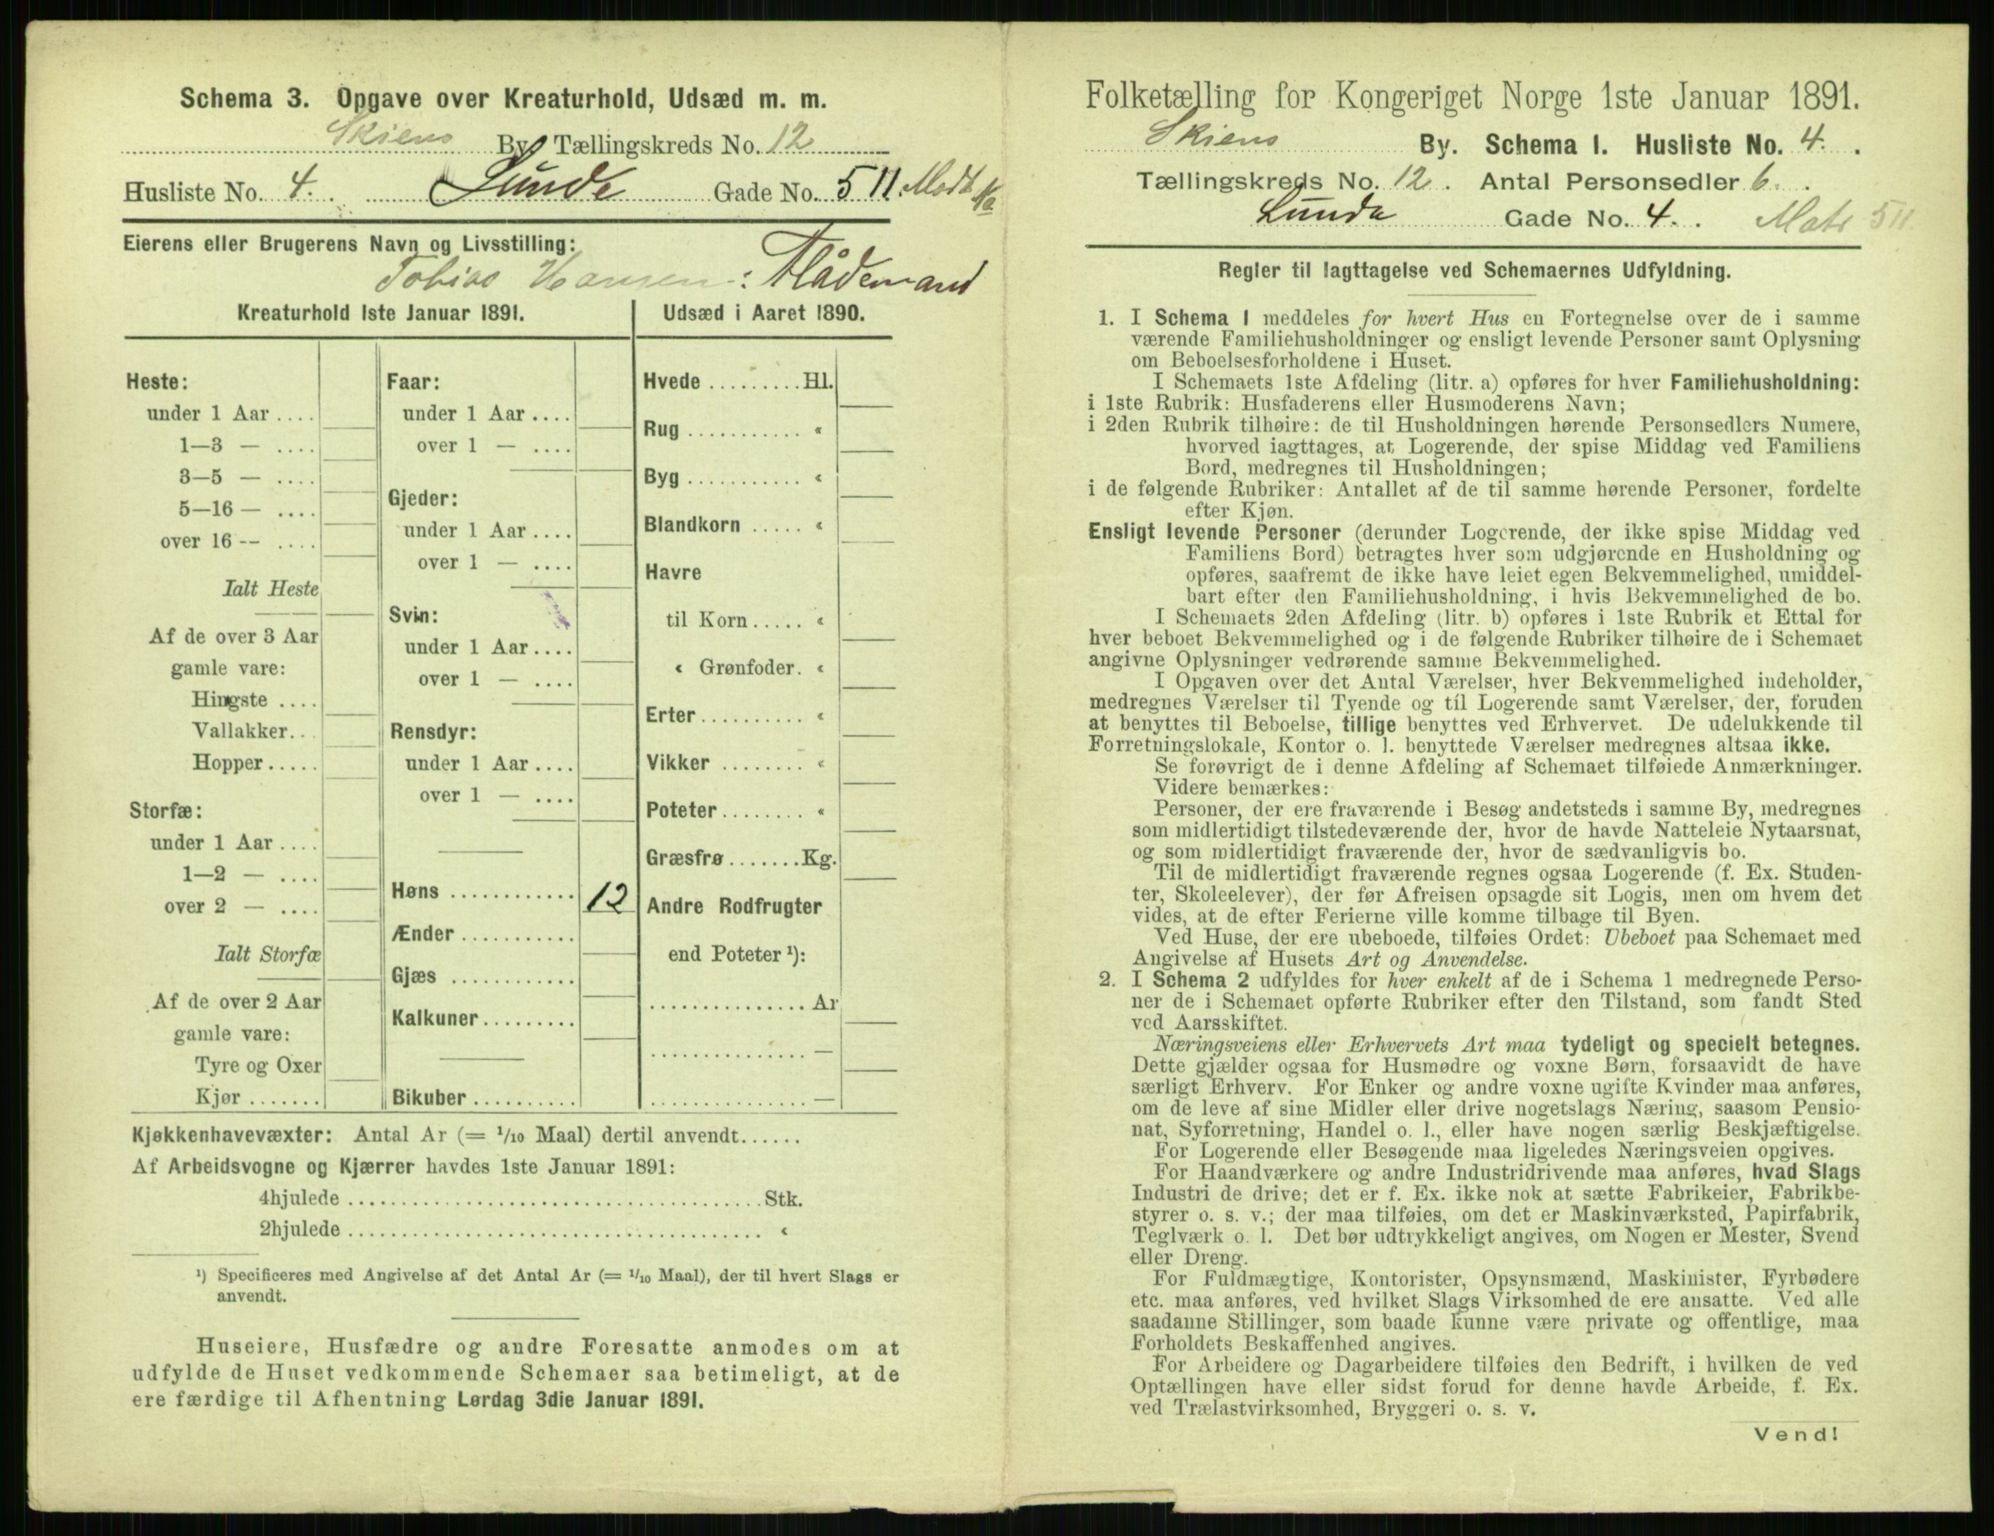 Schema 3. Opgave over Kreaturhold, Udsæd m. m.
Skiens By Tællingskreds No. 12
Husliste No. 4. Lunde Gade No. 511.
Eierens eller Brugerens Navn og Livsstilling:
Tobias Hansen: Flådemand
Kreaturhold 1ste Januar 1891.
Heste:
under 1 Aar ....
1—3 — ....
3—5 — ....
5—16 — ....
over 16 -- ....
Ialt Heste
Af de over 3 Aar
gamle vare:
Hingste ....
Vallakker...
Hopper.....
Storfæ:
under 1 Aar ....
1—2 — ....
over 2 — ....
Ialt Storfæ
Af de over 2 Aar
gamle vare:
Tyre og Oxer
Kjør .......
Faar:
under 1 Aar ....
over 1 — ....
Gjeder:
under 1 Aar ....
over 1 — ....
Svin:
under 1 Aar ....
over 1 — ....
Rensdyr:
under 1 Aar ....
over 1 — ....
Høns ............ 12
Ænder ...........
Gjæs ............
Kalkuner.........
Bikuber ..........
Udsæd i Aaret 1890.
Hvede .........Hl.
Rug ........... «
Byg ........... «
Blandkorn ..... «
Havre
til Korn ..... «
« Grønfoder. «
Erter.......... «
Vikker ........ «
Poteter........ «
Græsfrø .......Kg.
Andre Rodfrugter
end Poteter ¹):
............... Ar
............... —
............... —
Kjøkkenhavevæxter: Antal Ar (= 1/10 Maal) dertil anvendt......
Af Arbeidsvogne og Kjærrer havdes 1ste Januar 1891:
4hjulede ......................................Stk.
2hjulede ...................................... «
¹) Specificeres med Angivelse af det Antal Ar (= 1/10 Maal), der til hvert Slags er
anvendt.
Huseiere, Husfædre og andre Foresatte anmodes om at
udfylde de Huset vedkommende Schemaer saa betimeligt, at de
ere færdige til Afhentning Lørdag 3die Januar 1891.
Folketælling for Kongeriget Norge 1ste Januar 1891.
Skiens By. Schema I. Husliste No. 4.
Tællingskreds No. 12. Antal Personsedler 6.
Lunde Gade No. 4. Matr 511
Regler til Iagttagelse ved Schemaernes Udfyldning.
1. I Schema I meddeles for hvert Hus en Fortegnelse over de i samme
værende Familiehusholdninger og ensligt levende Personer samt Oplysning
om Beboelsesforholdene i Huset.
I Schemaets 1ste Afdeling (litr. a) opføres for hver Familiehusholdning:
i 1ste Rubrik: Husfaderens eller Husmoderens Navn;
i 2den Rubrik tilhøire: de til Husholdningen hørende Personsedlers Numere,
hvorved iagttages, at Logerende, der spise Middag ved Familiens
Bord, medregnes til Husholdningen;
i de følgende Rubriker: Antallet af de til samme hørende Personer, fordelte
efter Kjøn.
Ensligt levende Personer (derunder Logerende, der ikke spise Middag ved
Familiens Bord) betragtes hver som udgjørende en Husholdning og
opføres, saafremt de ikke have leiet egen Bekvemmelighed, umiddel-
bart efter den Familiehusholdning, i hvis Bekvemmelighed de bo.
I Schemaets 2den Afdeling (litr. b) opføres i 1ste Rubrik et Ettal for
hver beboet Bekvemmelighed og i de følgende Rubriker tilhøire de i Schemaet
angivne Oplysninger vedrørende samme Bekvemmelighed.
I Opgaven over det Antal Værelser, hver Bekvemmelighed indeholder,
medregnes Værelser til Tyende og til Logerende samt Værelser, der, foruden
at benyttes til Beboelse, tillige benyttes ved Erhvervet. De udelukkende til
Forretningslokale, Kontor o. l. benyttede Værelser medregnes altsaa ikke.
Se forøvrigt de i denne Afdeling af Schemaet tilføiede Anmærkninger.
Videre bemærkes:
Personer, der ere fraværende i Besøg andetsteds i samme By, medregnes
som midlertidigt tilstedeværende der, hvor de havde Natteleie Nytaarsnat,
og som midlertidigt fraværende der, hvor de sædvanligvis bo.
Til de midlertidigt fraværende regnes ogsaa Logerende (f. Ex. Studen-
ter, Skoleelever), der før Afreisen opsagde sit Logis, men om hvem det
vides, at de efter Ferierne ville komme tilbage til Byen.
Ved Huse, der ere ubeboede, tilføies Ordet: Ubeboet paa Schemaet med
Angivelse af Husets Art og Anvendelse.
2. I Schema 2 udfyldes for hver enkelt af de i Schema 1 medregnede Perso-
ner de i Schemaet opførte Rubriker efter den Tilstand, som fandt Sted
ved Aarsskiftet.
Næringsveiens eller Erhvervets Art maa tydeligt og specielt betegnes.
Dette gjælder ogsaa for Husmødre og voxne Børn, forsaavidt de have
særligt Erhverv. For Enker og andre voxne ugifte Kvinder maa anføres,
om de leve af sine Midler eller drive nogetslags Næring, saasom Pensio-
nat, Syforretning, Handel o. l., eller have nogen særlig Beskjæftigelse.
For Logerende eller Besøgende maa ligeledes Næringsveien opgives.
For Haandværkere og andre Industridrivende maa anføres, hvad Slags
Industri de drive; det er f. Ex. ikke nok at sætte Fabrikeier, Fabrikbe-
styrer o. s. v.; der maa tilføies, om det er Maskinværksted, Papirfabrik,
Teglværk o. l. Det bør udtrykkeligt angives, om Nogen er Mester, Svend
eller Dreng.
For Fuldmægtige, Kontorister, Opsynsmænd, Maskinister, Fyrbødere
etc. maa anføres, ved hvilket Slags Virksomhed de ere ansatte. Ved alle
saadanne Stillinger, som baade kunne være private og offentlige, maa
Forholdets Beskaffenhed angives.
For Arbeidere og Dagarbeidere tilføies den Bedrift, i hvilken de ved
Optællingen have eller sidst forud for denne havde Arbeide, f. Ex.
ved Trælastvirksomhed, Bryggeri o. s. v.
Vend!